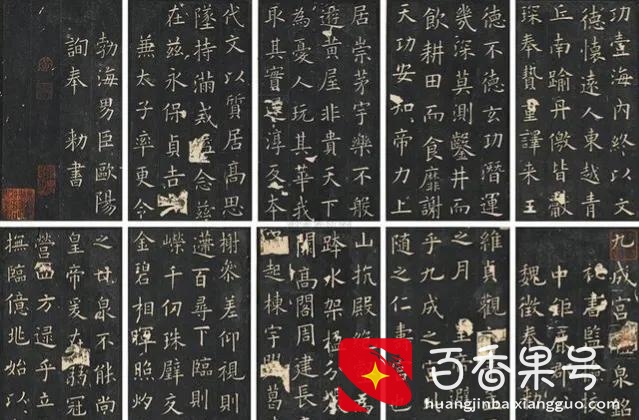 功壹海內終以文
德懷遠人東越青
丘南踰丹徼皆獻
琛奉贄重譯來王
德不德玄功潛運
幾深莫測鑿井而
飲耕田而食靡謝
天功安知帝力上
居崇茅宇樂不般
遊黃屋非貴天下
為憂人玩其華我
取其實還淳反本
代文以質居高思
墜持滿戒溢念茲
在茲永保貞吉
兼太子率更令
勃海男臣歐陽
詢奉 勅書
九成宮 泉銘
秘書監
中鉅鹿郡
魏徵奉
維貞觀
之月
乎九成之
隨之仁壽
山抗殿 為
跨水架楹分
閒高閣周建長
四起棟宇 葛
榭參差仰視則
百尋下臨則
嶸千仞珠璧交
金碧相暉照灼
之 泉不能尚
皇帝爰在弱冠
營四方逮乎立
撫臨億兆始以
百香果号
huangjinbaixiangguo.com